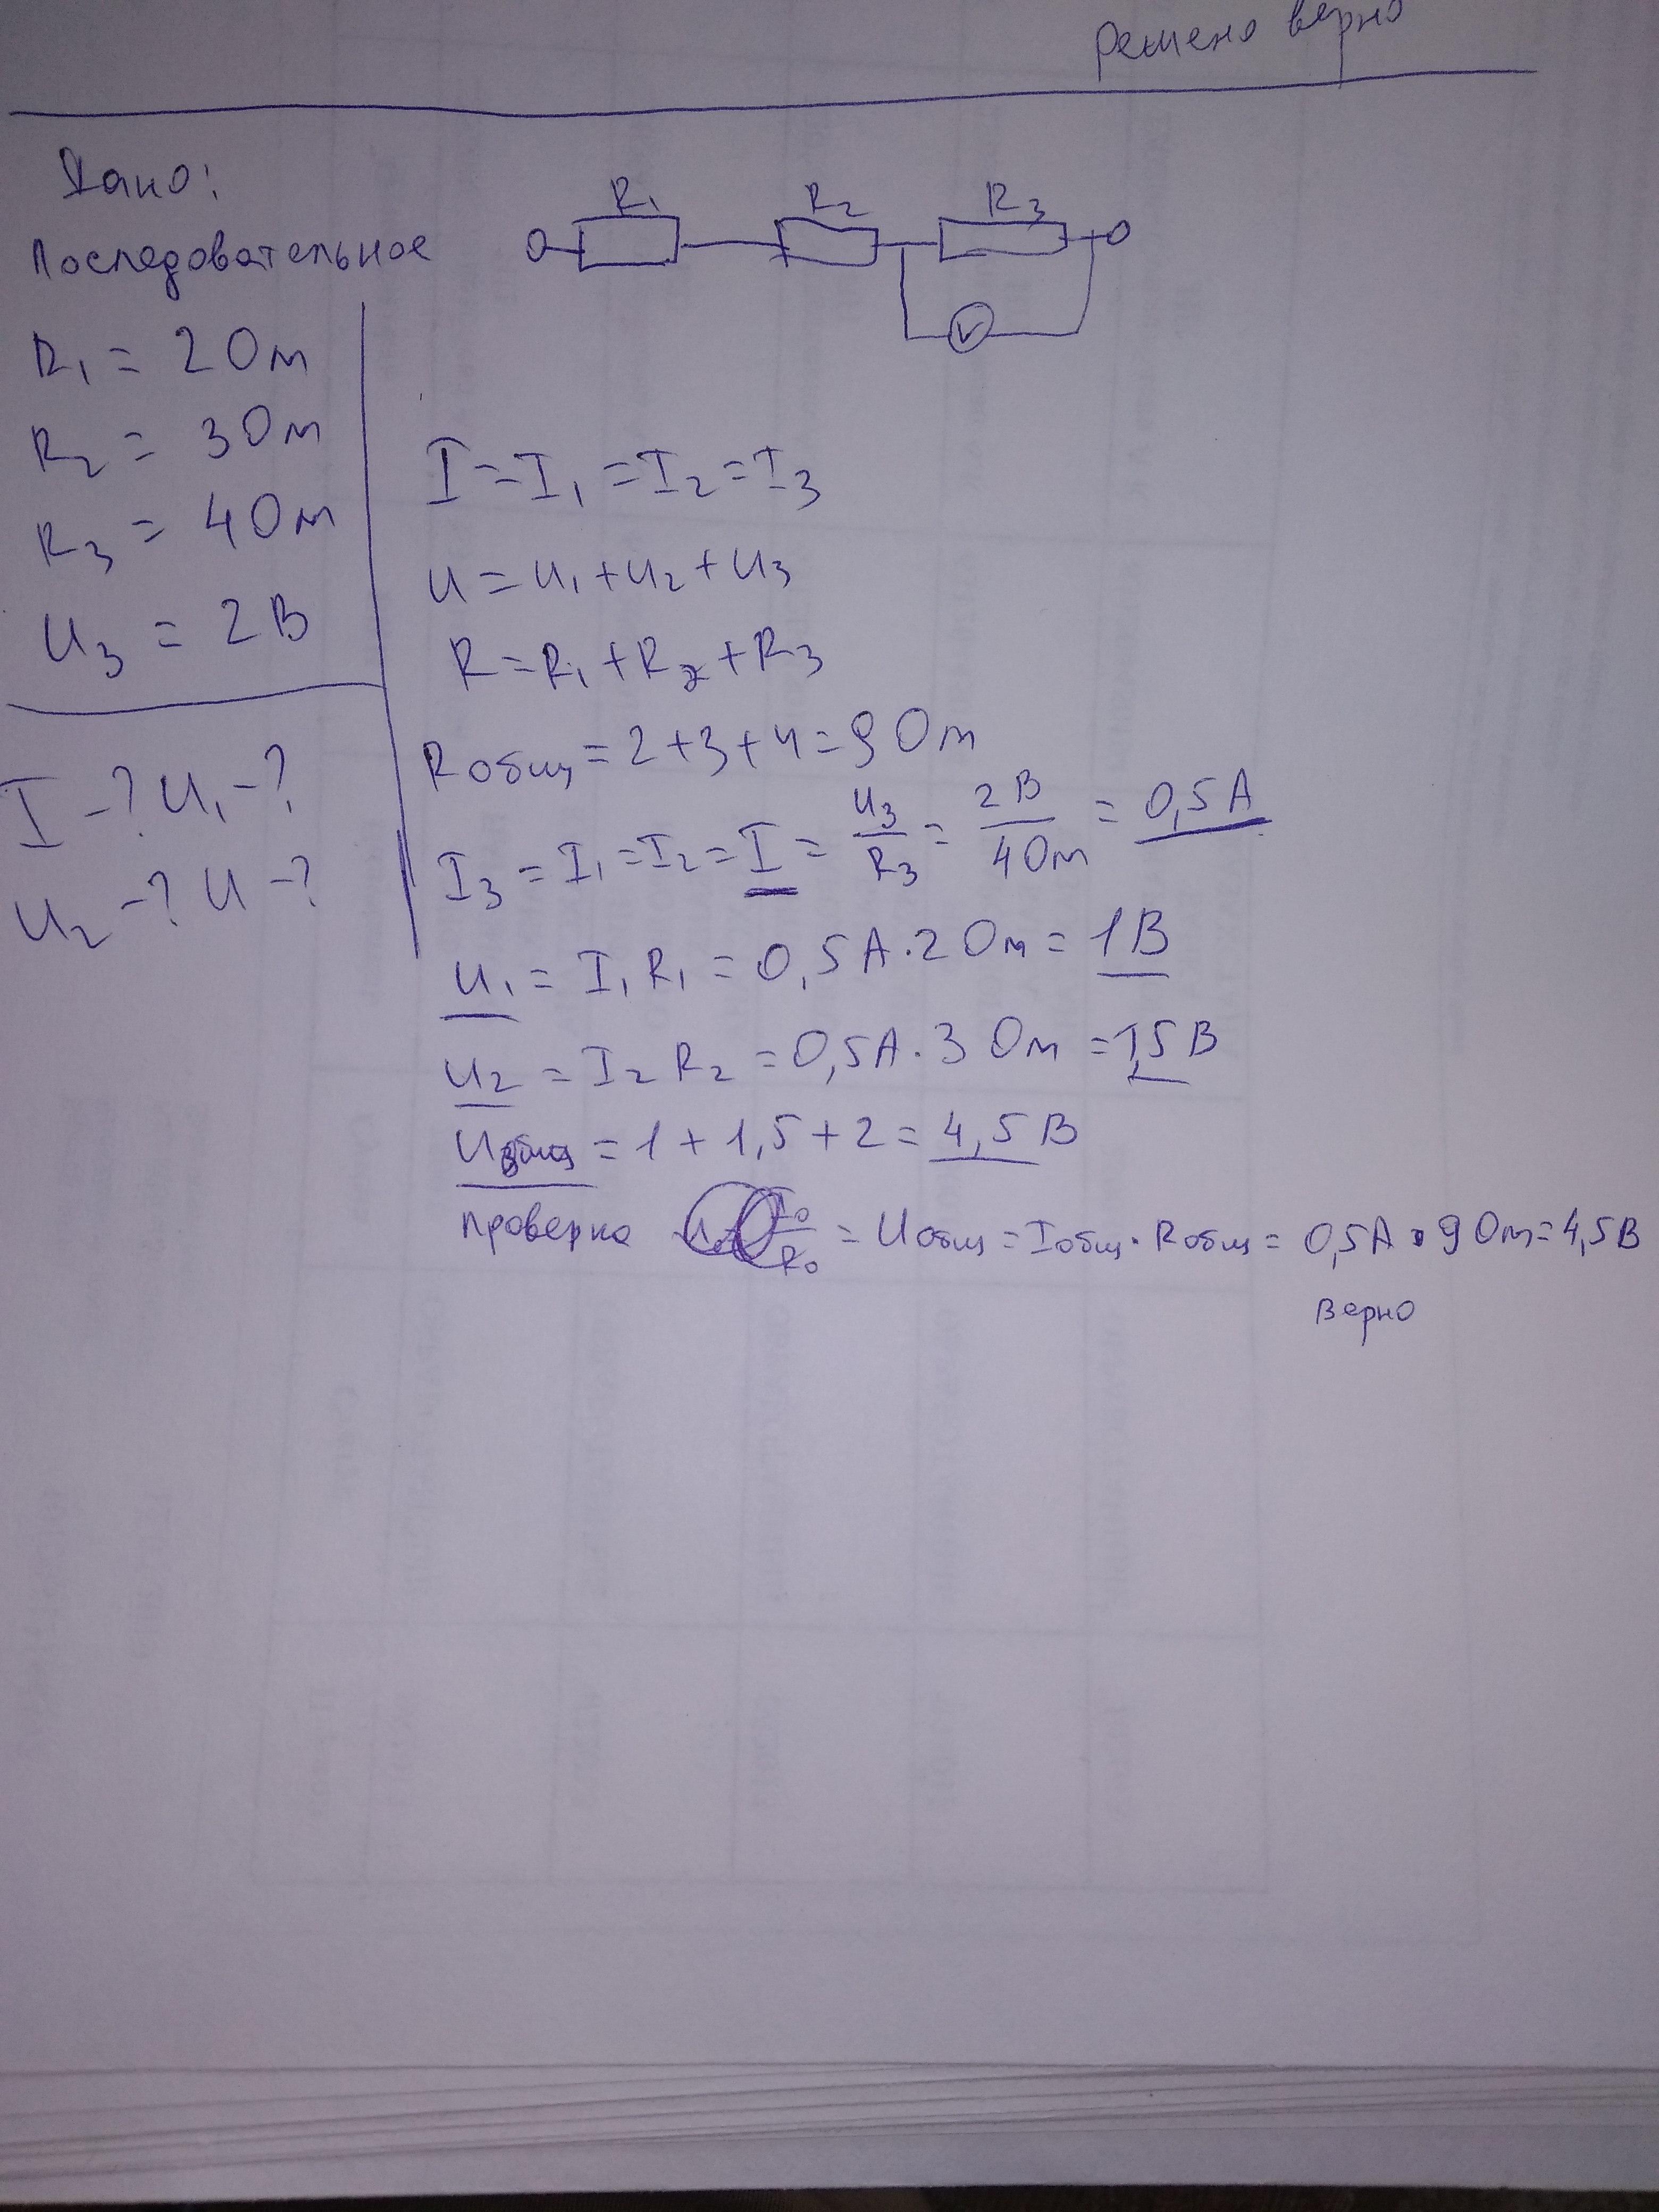 решено верно
Дано:
Последовательное
R₁ R₂ R₃
V
R₁ = 2 Ом
R₂ = 3 Ом
R₃ = 4 Ом
U₃ = 2 В
I - ? U₁ - ?
U₂ - ? U - ?
I = I₁ = I₂ = I₃
U = U₁ + U₂ + U₃
R = R₁ + R₂ + R₃
Rобщ = 2 + 3 + 4 = 9 Ом
I₃ = I₁ = I₂ = I = U₃/R₃ = 2 В/4 Ом = 0,5 А
U₁ = I₁ R₁ = 0,5 А · 2 Ом = 1 В
U₂ = I₂ R₂ = 0,5 А · 3 Ом = 1,5 В
Uобщ = 1 + 1,5 + 2 = 4,5 В
проверка = Uобщ = Iобщ · Rобщ = 0,5 А · 9 Ом = 4,5 В
верно